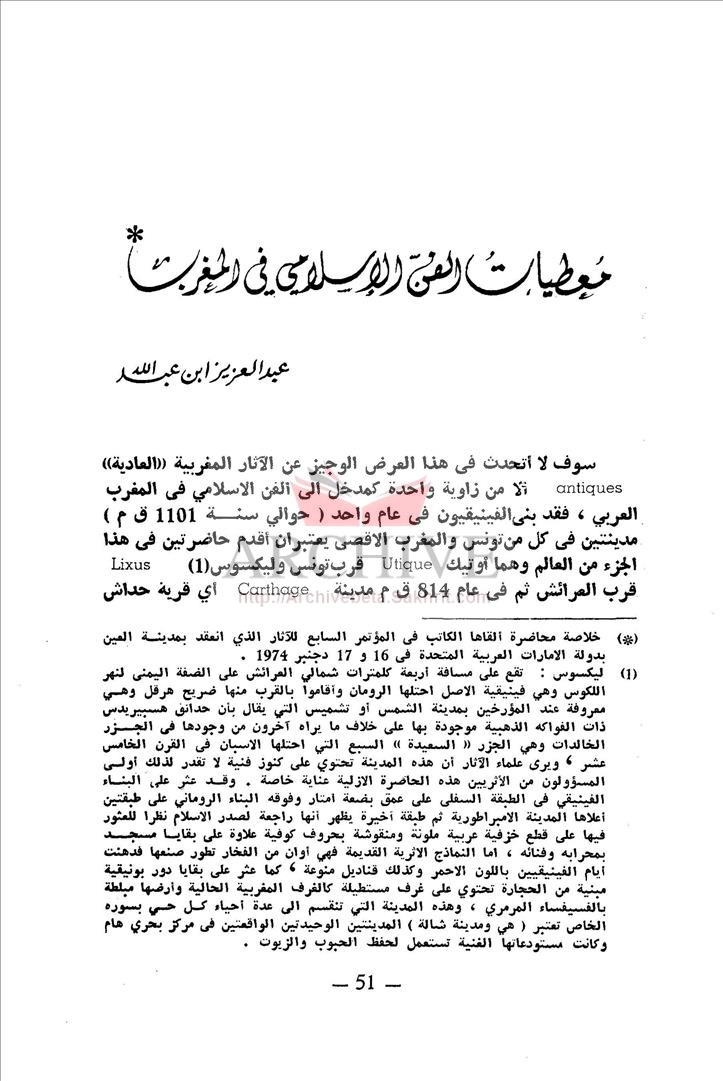 معطيات الفن الإسلامي في المغرب *
عبد العزيز ابن عبد الله
سوف لا أتحدث فى هذا العرض الوجيز عن الآثار المغربية ((العادية))
antiques ألا من زاوية واحدة كمدخل الى الفن الاسلامي فى المغرب
العربي ، فقد بنى الفينيقيون فى عام واحد ( حوالي سنــة 1101 ق م )
مدينتين فى كل من تونس والمغرب الاقصى يعتبران أقدم حاضرتين فى هذا
الجزء من العالم وهما أوتيك Utique قرب تونس وليكسوس (1) Lixus
قرب العرائش ثم فى عام 814 ق م مدينة Carthage أي قرية حداش
ARCHIVE
http://Archivebeta.Sakhrit.com
(*) خلاصة محاضرة ألقاها الكاتب فى المؤتمر السابع للآثار الذي انعقد بمدينـة العين
بدولة الامارات العربية المتحدة فى 16 و 17 دجنبر 1974 .
(1) ليكسوس : تقع على مسافة أربعة كلمترات شمالي العرائش على الضفة اليمنى لنهر
اللكوس وهي فينيقية الاصل احتلها الرومان وأقاموا بالقرب منها ضريح هرقل وهــي
معروفة عند المؤرخين بمدينة الشمس أو تشميس التي يقال بأن حدائق هسبيريدس
ذات الفواكه الذهبية موجودة بها على خلاف ما يراه آخرون من وجودها فى الجــزر
الخالدات وهي الجزر « السعيدة » السبع التي احتلها الاسبان فى القرن الخامس
عشر ، ويرى علماء الآثار أن هذه المدينة تحتوي على كنوز فنية لا تقدر لذلك أولـى
المسؤولون من الأثريين هذه الحاضرة الازلية عناية خاصة . وقـد عثر على البنـاء
الفينيقي فى الطبقة السفلى على عمق بضعة امتار وفوقه البناء الروماني على طبقتين
أعلاها المدينة الامبراطورية ثم طبقة أخيرة يظهر أنها راجعة لصدر الاسلام نظرا للعثور
فيها على قطع خزفية عربية ملونة ومنقوشة بحروف كوفية علاوة على بقايـا مسجـد
بمحرابه وفنائه ، اما النماذج الاثرية القديمة فهي أوان من الفخار تطور صنعها فدهنت
أيام الفينيقيين باللون الاحمر وكذلك قناديل منوعة ، كما عثر على بقايا دور بونيقية
مبنية من الحجارة تحتوي على غرف مستطيلة كالغرف المغربية الحالية وأرضها مبلطة
بالفسيفساء المرمري ، وهذه المدينة التي تنقسم الى عدة أحياء كـل حـي بسوره
الخاص تعتبر ( هي ومدينة شالة ) المدينتين الوحيدتين الواقعتين فى مركز بحري هام
وكانت مستودعاتها الغنية تستعمل لحفظ الحبوب والزيوت .
— 51 —